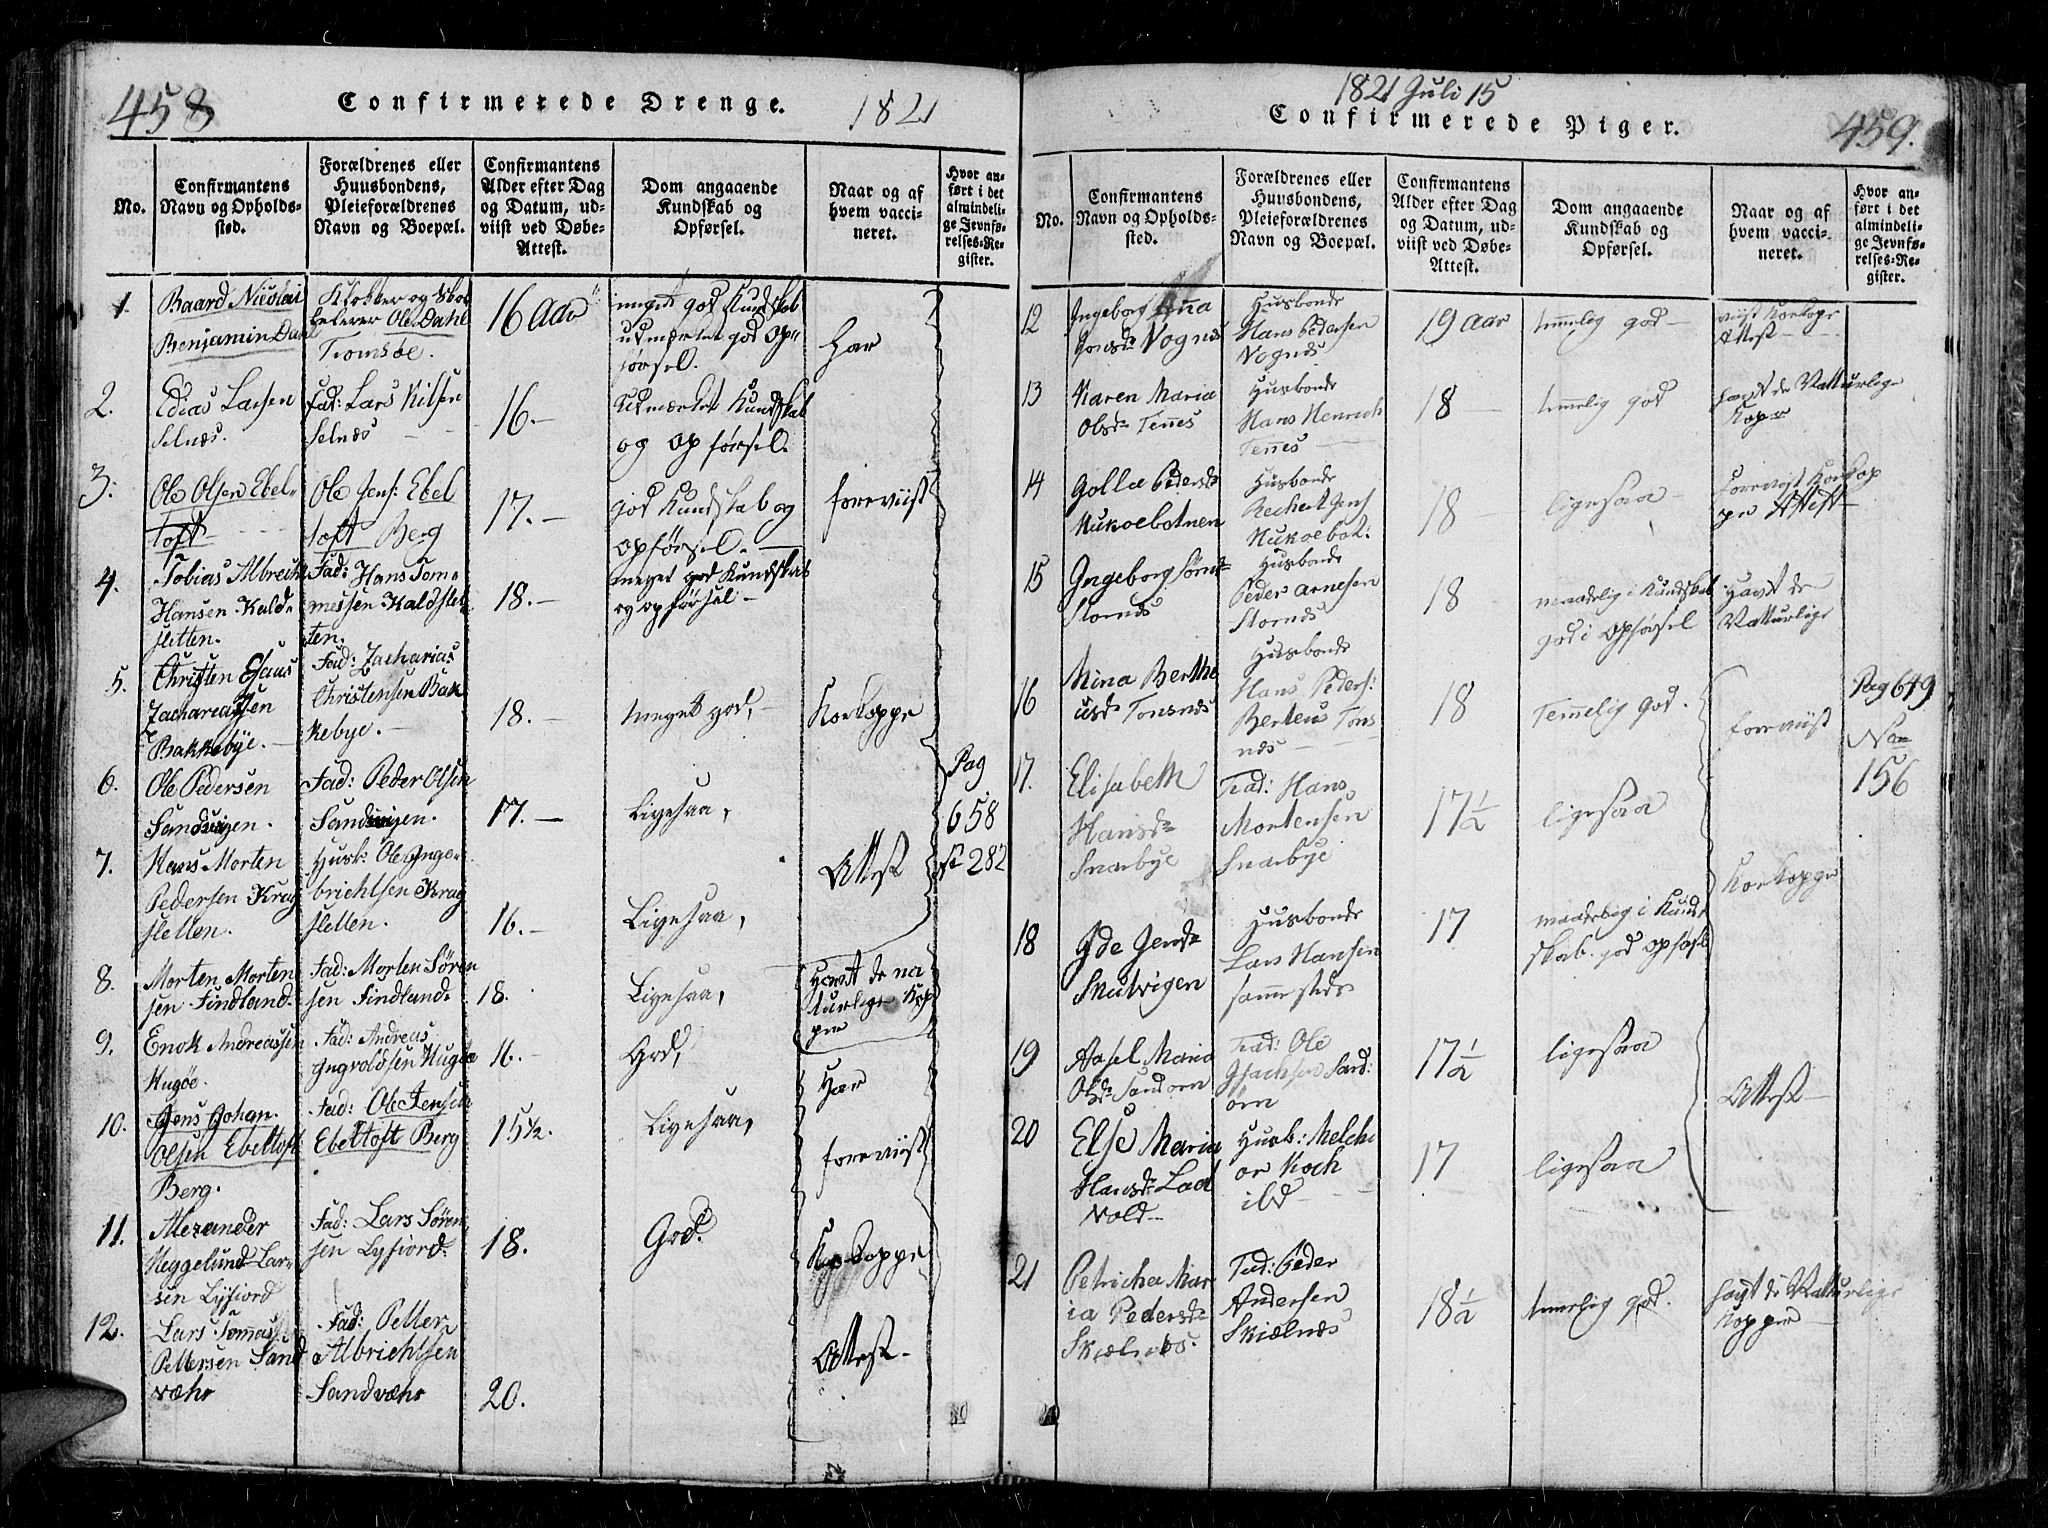 458
Confirmerede Drenge.
1821
No.
Confirmantens
Navn og Opholds-
sted.
Forældrenes eller
Huusbondens,
Pleieforældrenes
Navn og Boepæl.
Confirmantens
Alder efter Dag
og Datum, ud-
viist ved Døbe-
Attest.
Dom angaaende
Kundskab og
Opførsel.
Naar og af
hvem vacci-
neret.
Hvor an-
ført i det
almindeli-
ge Jevnfø-
relses-Re-
gister.
1.
Baard Nicolai
Benjamin Dahl
Klokker og Skol
Ole Dahl
Tromsøe.
16 Aar
meget god Kundskab
udmærket god Op-
førsel.
Har
2.
Edias Larsen
Selnæs.
Fad: Lars Nilsen
Selnæs
16.-
Udmærket Kundskab
og Opførsel.
3.
Ole Olsen Ebel-
toft
Ole Jens: Ebel
toft Berg
17.-
god Kundskab og
Opførsel.
foreviist
4.
Tobias Albrecht
Hansen Kald-
sletten.
Fad: Hans Tom-
messen Kaldslet-
ten.
18.-
meget god Kundskab
og opførsel-
5.
Christen Esaus
Zachariassen
Bakkebye.-
Fad: Zacharias
Christensen Bak
kebye.-
18.-
meget god,-
Korkoppe
6.
Ole Pedersen
Sandvigen.
Fad: Peder Olsen
Sandvigen.
17.-
Ligesaa,
Pag
658
No 282
7.
Hans Morten
Pedersen Krag
sletten.
Husb: Ole Inge-
brichtsen Krag
sletten.
16.-
Ligesaa,
Attest
8.
Morten Morten
sen Findland.
Fad: Morten Søren
sen Findland.
18.
Ligesaa,
Havt de na
turlige Kop
per
9.
Enok Andreassen
Fad: Andreas
Ingvoldsen
16.-
God,
Har
10.
Jens Johan
Olsen Ebeltoft
Berg.
Fad: Ole Jensen
Ebeltoft Berg
15 1/2.
Ligesaa,
foreviist
11.
Alexander
Heggelund Lar-
sen Lyfiord
Fad: Lars Søren
sen Lyfiord.
18.
God.
Kopkoppe
12.
Lars Tomas
Pettersen Sand
væhr
Fad: Petter
Albrichtsen
Sandvæhr
20.
Attest-
1821 Juli 15
Confirmerede Piger.
459.
No.
Confirmantens
Navn og Opholds-
sted.
Forældrenes eller
Huusbondens,
Pleieforældrenes
Navn og Boepæl.
Confirmantens
Alder efter Dag
og Datum, ud-
viist ved Døbe-
Attest.
Dom angaaende
Kundskab og
Opførsel.
Naar og af
hvem vacci-
neret.
Hvor an-
ført i det
almindeli-
ge Jevnfø-
relses-Re-
gister.
12
Ingeborg Ana
Jonsdr Vognæs
Husbonde
Hans Pedersen
Vognæs
19 Aar
temelig god-
viist Korkope
Attest-
13
Karen Maria
Olsdr Tennes
Husbonde
Hans Henrich
Tennes
18
temelig god
havt de Natturlige
Koper
14
Golla Pedersdr
Nukoebotnen
Husbonde
Rechert Jens
Nukoebot:
18
ligesaa-
Forevist Korkop
pe Attest-
15
Ingeborg Sørns
Stornæs
Husbonde
Peder Arnesen
Stornæs
18
maadelig i Kundskab
god i Opførsel
Havt de
Natturlige
16
Nina Berthe
usdr Tonsnæs
Husbonde
Hans Peders:
Berteus Tons
næs
18
Temmelig god.
foreviist
Pag 649
No
156
17.
Elisabeth
Hansdr
Snarbye
Fad: Hans
Mortensen
Snarbye
17 1/2
ligesaa
Korkoppe
18
Ide Jensdr
Skulvigen
Husbonde
Lars Hansen
samme steds
17
maadelig i Kund
skab. god opførsel
19
Axsel Maria
Olsdr Sandørn
Fad: Ole
Isachsen Sand:
ørn
17 1/2
ligesaa
Attest-
20
Else Maria
Hansdr Lad
vold
Husb: Melchi
or Koch
ibd
17
ligesaa
21
Petricha Mar
ia Pedersdr
Skiælnæs.
Fad: Peder
Andersen
Skiælnæs
18 1/2
temelig god.
havt de Natturlige
Kopper